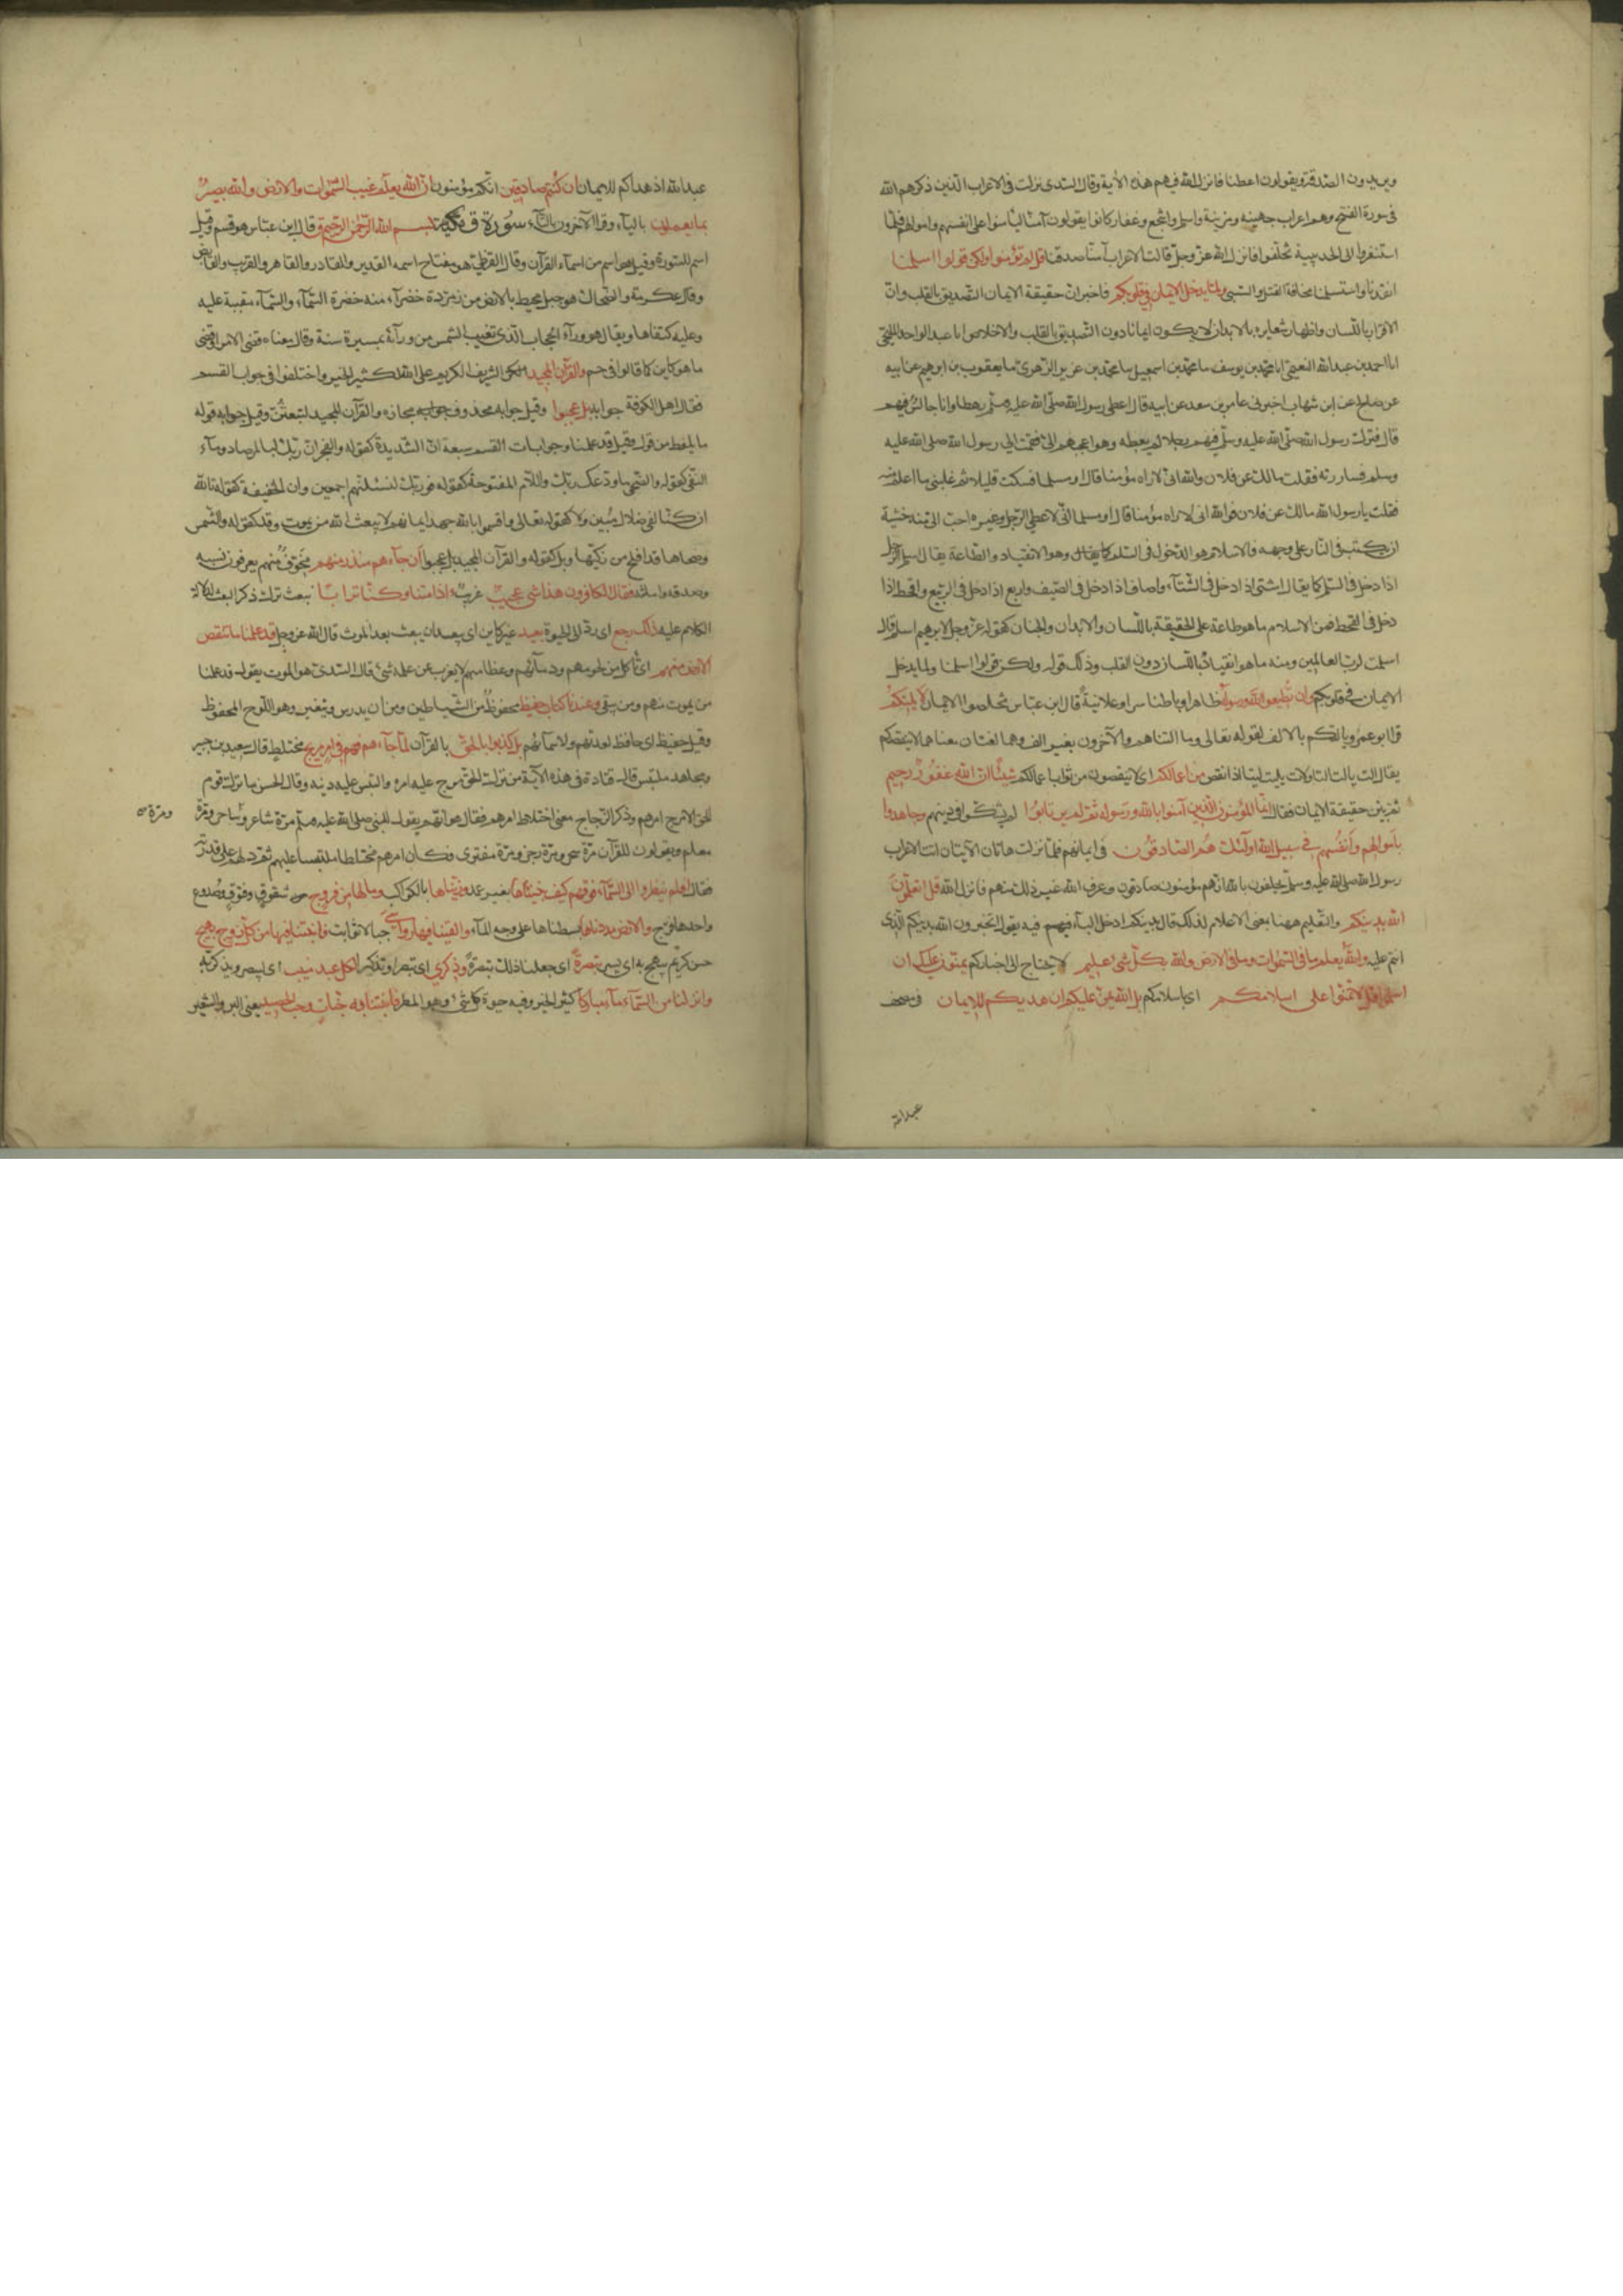 ويريدون الصدقة ويقولون اعطنا فانزل الله فيهم هذه الآية وقال السدى نزلت فى الاعراب الذين ذكرهم الله
فى سورة الفتح وهم اعراب جهينه ومزينة واسلم واشجع وغفار كانوا يقولون آمنا ليأمنوا على انفسهم واموالهم فلما
استنفروا الى الحديبية تخلفوا فانزل الله عز وجل قالت الاعراب آمنا صدقنا قل لم تؤمنوا ولكن قولوا اسلمنا
انقدنا واستسلمنا مخافة القتل والسبى ولما يدخل الايمان فى قلوبكم فاخبر ان حقيقة الايمان التصديق بالقلب وان
الاقرار باللسان واظهار شعايره بالابدان لا يكون ايمانا دون التصديق بالقلب والاخلاص انا عبد الواحد المليحى
انا احمد بن عبد الله النعيمى انا محمد بن يوسف نا محمد بن اسمعيل نا محمد بن عزير الزهرى نا يعقوب بن ابرهيم عن ابيه
عن صالح عن ابن شهاب اخبرنى عامر بن سعد عن ابيه قال اعطى رسول الله صلى الله عليه وسلم رهطا وانا جالس فيهم
قال فترك رسول الله صلى الله عليه وسلم فيهم رجلا لم يعطه وهو اعجبهم الى فقمت الى رسول الله صلى الله عليه
وسلم فساررته فقلت مالك عن فلان والله انى لاراه مؤمنا قال او مسلما فسكت قليلا ثم غلبنى ما اعلم منه
فقلت يا رسول الله مالك عن فلان فوالله انى لاراه مؤمنا قال او مسلما انى لاعطى الرجل وغيره احب الى منه خشية
ان يكتب فى النار على وجهه فالاسلام هو الدخول فى السلم وهو الانقياد والطاعة يقال اسلم الرجل
اذا دخل فى السلم كما يقال اشتى اذا دخل فى الشتآء واصاف اذا دخل فى الصيف واربع اذا دخل فى الربيع واقحط اذا
دخل فى القحط فمن الاسلام ما هو طاعة على الحقيقة باللسان والابدان والجنان كقوله عز وجل لابرهيم اسلم قال
اسلمت لرب العالمين ومنه ما هو انقياد باللسان دون القلب وذلك قوله ولكن قولوا اسلمنا ولما يدخل
الايمان فى قلوبكم وان تطيعوا الله ورسوله ظاهرا وباطنا سرا وعلانية قال ابن عباس تخلصوا الايمان لا يلتكم
قرا ابو عمرو يالتكم بالالف لقوله تعالى وما التناهم والآخرون بغير الف وهما لغتان معناهما لا ينقصكم
يقال الت يالت التا ولات يليت ليتا اذا نقص من اعمالكم اى لا ينقصون من ثواب اعمالكم شيئا ان الله غفور رحيم
ثم بين حقيقة الايمان فقال انما المؤمنون الذين آمنوا بالله ورسوله ثم لم يرتابوا لم يشكوا فى دينهم وجاهدوا
باموالهم وانفسهم فى سبيل الله اولئك هم الصادقون فى ايمانهم فلما نزلت هاتان الآيتان اتت الاعراب
رسول الله صلى الله عليه وسلم يحلفون بالله انهم مؤمنون صادقون وعرف الله غير ذلك منهم فانزل الله قل اتعلمون
الله بدينكم والتعليم ههنا بمعنى الاعلام لذلك قال بدينكم وادخل البآء فيه يقول اتخبرون الله بدينكم الذى
انتم عليه والله يعلم ما فى السموات وما فى الارض والله بكل شئ عليم لا يحتاج الى اخباركم يمنون عليك ان
اسلموا قل لا تمنوا على اسلامكم اى باسلامكم بل الله يمن عليكم ان هديكم للايمان فى مصحف
عبد الله
عبد الله اذ هداكم للايمان ان كنتم صادقين انكم مؤمنون ان الله يعلم غيب السموات والارض والله بصير
بما تعملون باليآء وقرا الآخرون بالتآء سورة ق مكية بسم الله الرحمن الرحيم ق قال ابن عباس هو قسم وقيل
اسم للسورة وقيل هو اسم من اسمآء القرآن وقال القرظى هو مفتاح اسمه القدير والقادر والقاهر والقريب والقابض
وقال عكرمة والضحاك هو جبل محيط بالارض من زمردة خضرآء منه خضرة السمآء والسمآء مقببة عليه
وعليه كتفاها ويقال هو ورآء الحجاب الذى تغيب الشمس من ورآئه بمسيرة سنة وقال معناه قضى الامر او قضى
ما هو كاين كما قالوا فى حم والقرآن المجيد الشريف الكريم على الله الكثير الخير واختلفوا فى جواب القسم
فقال اهل الكوفة جوابه بل عجبوا وقيل جوابه محذوف مجازه والقرآن المجيد لتبعثن وقيل جوابه قوله
ما يلفظ من قول وقيل قد علمنا وجوابات القسم سبعة ان الشديدة كقوله والفجر ان ربك لبالمرصاد ومآء
النفى كقوله والضحى ما ودعك ربك واللام المفتوحة كقوله فوربك لنسئلنهم اجمعين وان الخفيفة كقوله تالله
ان كنا لفى ضلال مبين ولا كقوله تعالى واقسموا بالله جهد ايمانهم لا يبعث الله من يموت وقد كقوله والشمس
وضحاها قد افلح من زكيها وبل كقوله والقرآن المجيد بل عجبوا ان جآءهم منذر منهم مخوف منهم يعرفون نسبه
وصدقه وامانته فقال الكافرون هذا شئ عجيب غريب ائذا متنا وكنا ترابا نبعث ترك ذكر البعث لدلالة
الكلام عليه ذلك رجع اى رد الى الحيوة بعيد غير كاين اى يبعد ان يبعث بعد الموت قال الله عز وجل قد علمنا ما تنقص
الارض منهم اى تأكل من لحومهم ودمآئهم وعظامهم لا يعزب عن علمه شئ قال السدى هو الموت يقول قد علمنا
من يموت منهم ومن يبقى وعندنا كتاب حفيظ محفوظ من الشياطين ومن ان يدرس ويتغير وهو اللوح المحفوظ
وقيل حفيظ اى حافظ لعدتهم ولاسمآئهم بل كذبوا بالحق بالقرآن لما جآءهم فهم فى امر مريج مختلط قال سعيد بن جبير
ومجاهد ملتبس قال قتادة فى هذه الآية من ترك الحق مرج عليه امره والتبس عليه دينه وقال الحسن ما ترك قوم
الحق الا مرج امرهم وذكر الزجاج معنى اختلاط امرهم فقال هو انهم يقولون للنبى صلى الله عليه وسلم مرة شاعر ومرة ساحر ومرة
معلم ويقولون للقرآن مرة سحر ومرة رجز ومرة مفترى فكان امرهم مختلطا ملتبسا عليهم ثم دلهم على قدرته
فقال افلم ينظروا الى السمآء فوقهم كيف بنيناها بغير عمد وزيناها بالكواكب وما لها من فروج شقوق وفتوق وصدوع
واحدها فرج والارض مددناها بسطناها على وجه المآء والقينا فيها رواسى جبالا ثوابت وانبتنا فيها من كل زوج بهيج
حسن كريم يبهج به اى يسر تبصرة اى جعلنا ذلك تبصرة وذكرى اى تبصرا وتذكيرا لكل عبد منيب اى ليبصر ويذكر به
وانزلنا من السمآء مآء مباركا كثير الخير وفيه حيوة كل شئ وهو المطر فانبتنا به جنات وحب الحصيد يعنى البر والشعير
ومرة